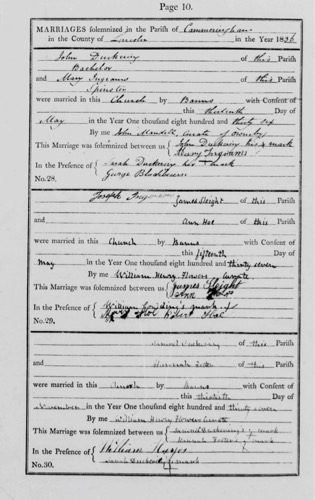 Page 10.
MARRIAGES solemnized in the Parish of Cammeringham
in the County of Lincoln in the Year 1836
John Duckering of this Parish
Bachelor
and Mary Ingrams of this Parish
Spinster
were married in this Church by Banns with Consent of
this thirteenth Day of
May in the Year One thousand eight hundred and thirty six
By me John Mandell, Curate of
This Marriage was solemnized between us John Duckering his x mark
Mary Ingrams
In the Presence of Sarah Duckering her x mark
George Blackburn
No.28.
Joseph James Sleight of this Parish
and Ann Hoe of this Parish
were married in this Church by Banns with Consent of
this fifteenth Day of
May in the Year One thousand eight hundred and thirty seven
By me William Henry Flowers Curate
This Marriage was solemnized between us James Sleight
Ann Hoe
In the Presence of William mark x
Hoe Hoe
No.29.
Samuel Duckering of this Parish
and Hannah Foster of this Parish
were married in this Church by Banns with Consent of
this thirtieth Day of
November in the Year One thousand eight hundred and thirty seven
By me William Henry Flowers Curate
This Marriage was solemnized between us Samuel Duckering's x mark
Hannah Foster's x mark
In the Presence of William
Sarah Duckering's x mark
No.30.